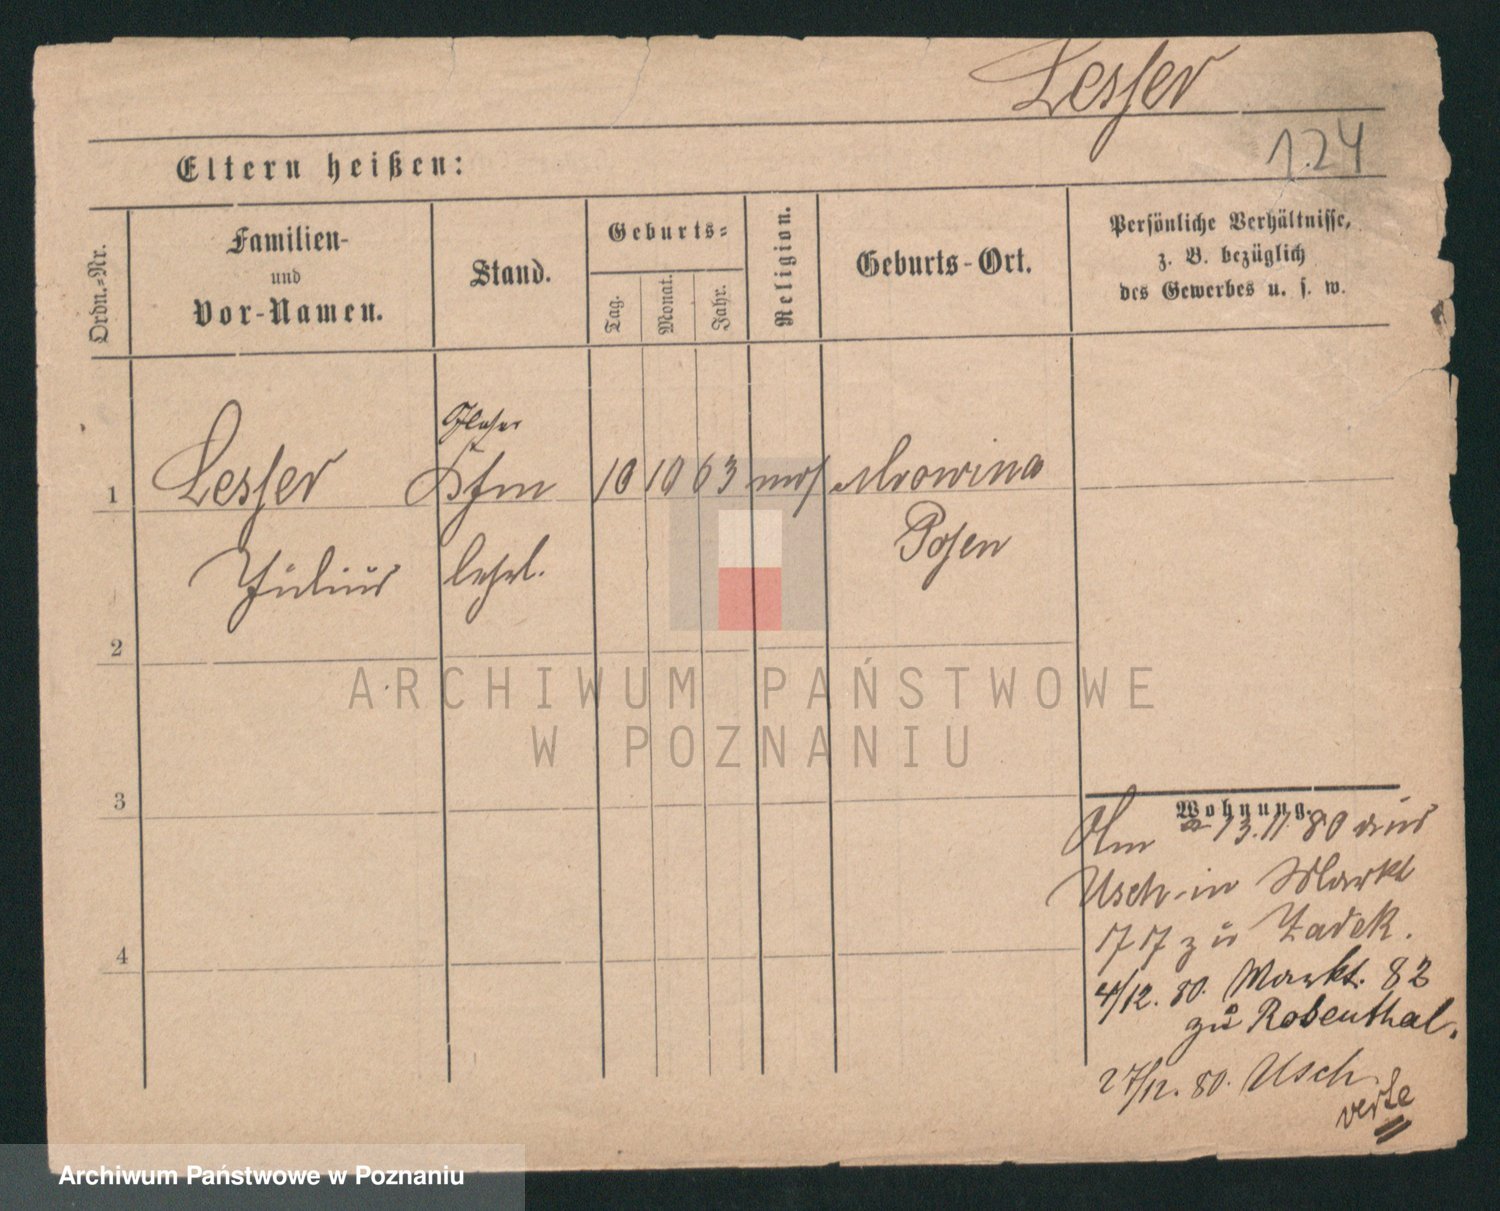 Lesser
124
Eltern heißen:
Ordn.-Nr.
Familien-
und
Vor-Namen.
Stand.
Geburts-
Tag.
Monat.
Jahr.
Religion.
Geburts-Ort.
Persönliche Verhältnisse,
z. B. bezüglich
des Gewerbes u. s. w.
1 Lesser Kfm 10 10 63 mos Mrowina
Julius lehrl. Posen
2
3
4
Wohnung.
Am 13.11.80 aus
Usch in Markt
77 zu Zadek.
4/12. 80. Markt. 82
zu Rosenthal.
27/12. 80. Usch.
verte
ARCHIWUM PAŃSTWOWE
W POZNANIU
Archiwum Państwowe w Poznaniu